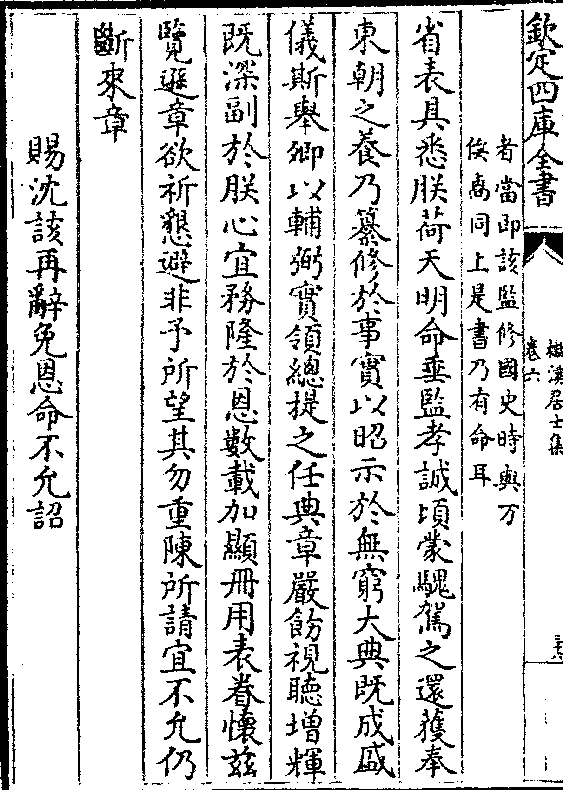 欽定四庫全書
楳溪居士集
卷六
者當即該監修國史時與万
俟卨同上是書乃有命耳
省表具悉朕荷天明命垂監孝誠頃蒙騩駕之還獲奉
東朝之養乃纂修於事實以昭示於無窮大典既成盛
儀斯舉卿以輔弼實領總提之任典章嚴飭視聽增輝
既深副於朕心宜務隆於恩數載加顯冊用表眷懷兹
覽遜章欲祈懇避非予所望其勿重陳所請宜不允仍
斷來章
賜沈該再辭免恩命不允詔